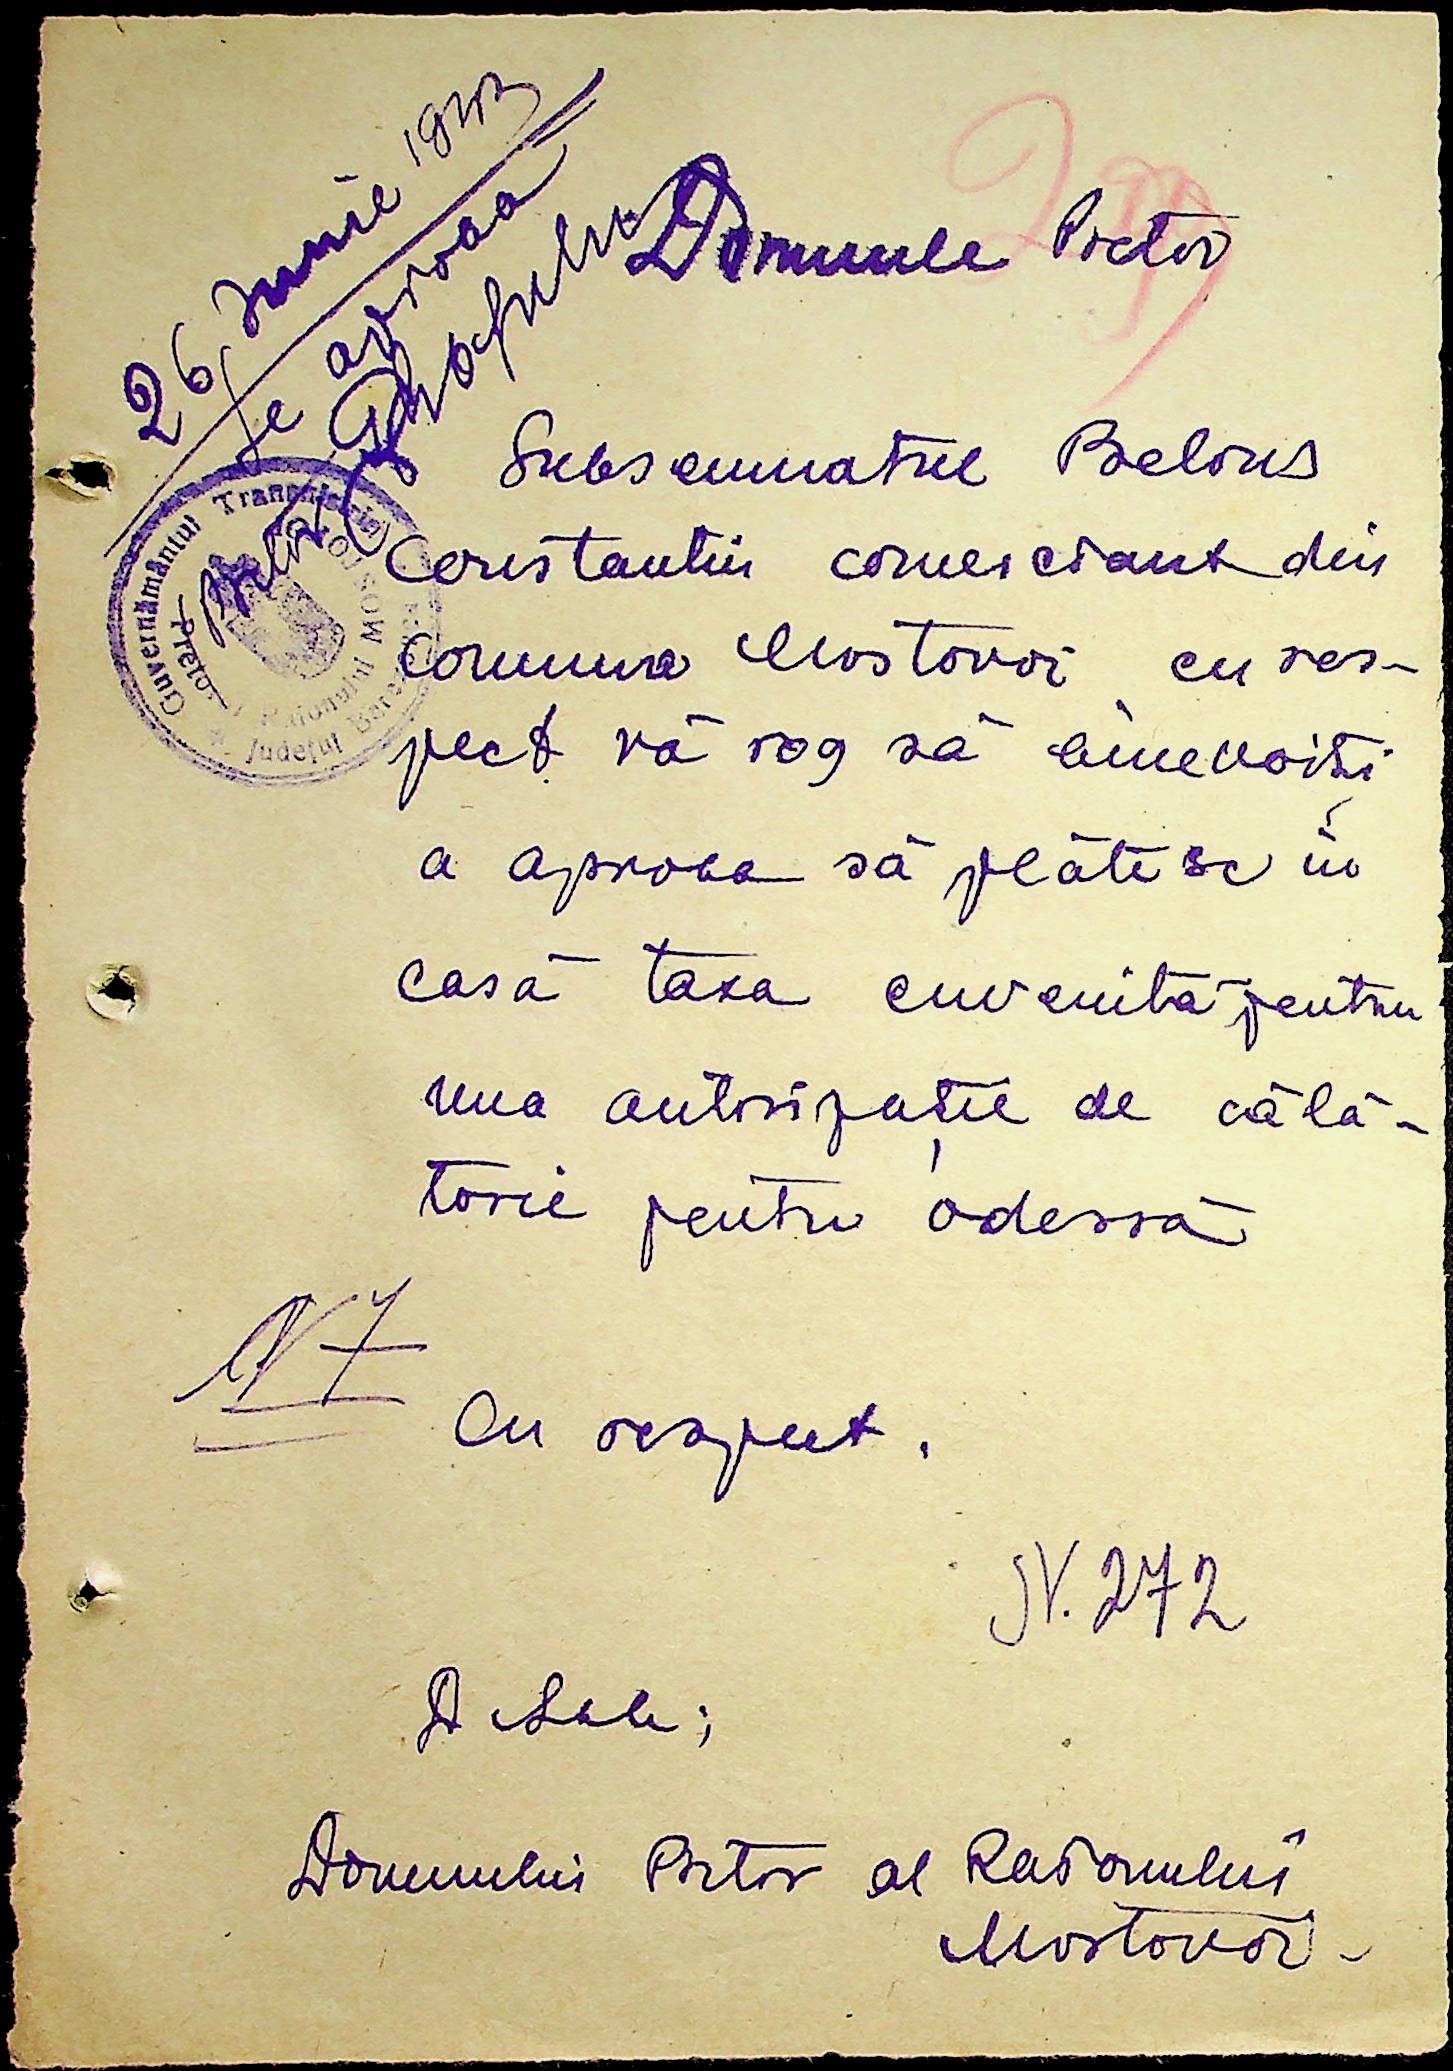 26 Iunie 1943
Se aproba
Domnule Pretor
Subsemnatul Belous
Constantin comerciant din
comuna Mostovoi cu res-
pect vă rog să binevoiți
a aproba să plătesc în
casă taxa cuvenită pentru
una autorizație de călă-
torie pentru Odessa
N 7
Cu respect.
N. 272
D Sale;
Domnului Pretor al Raionului
Mostovoi -
Guvernământul Transnistriei
Pretor
Raionului
Județul